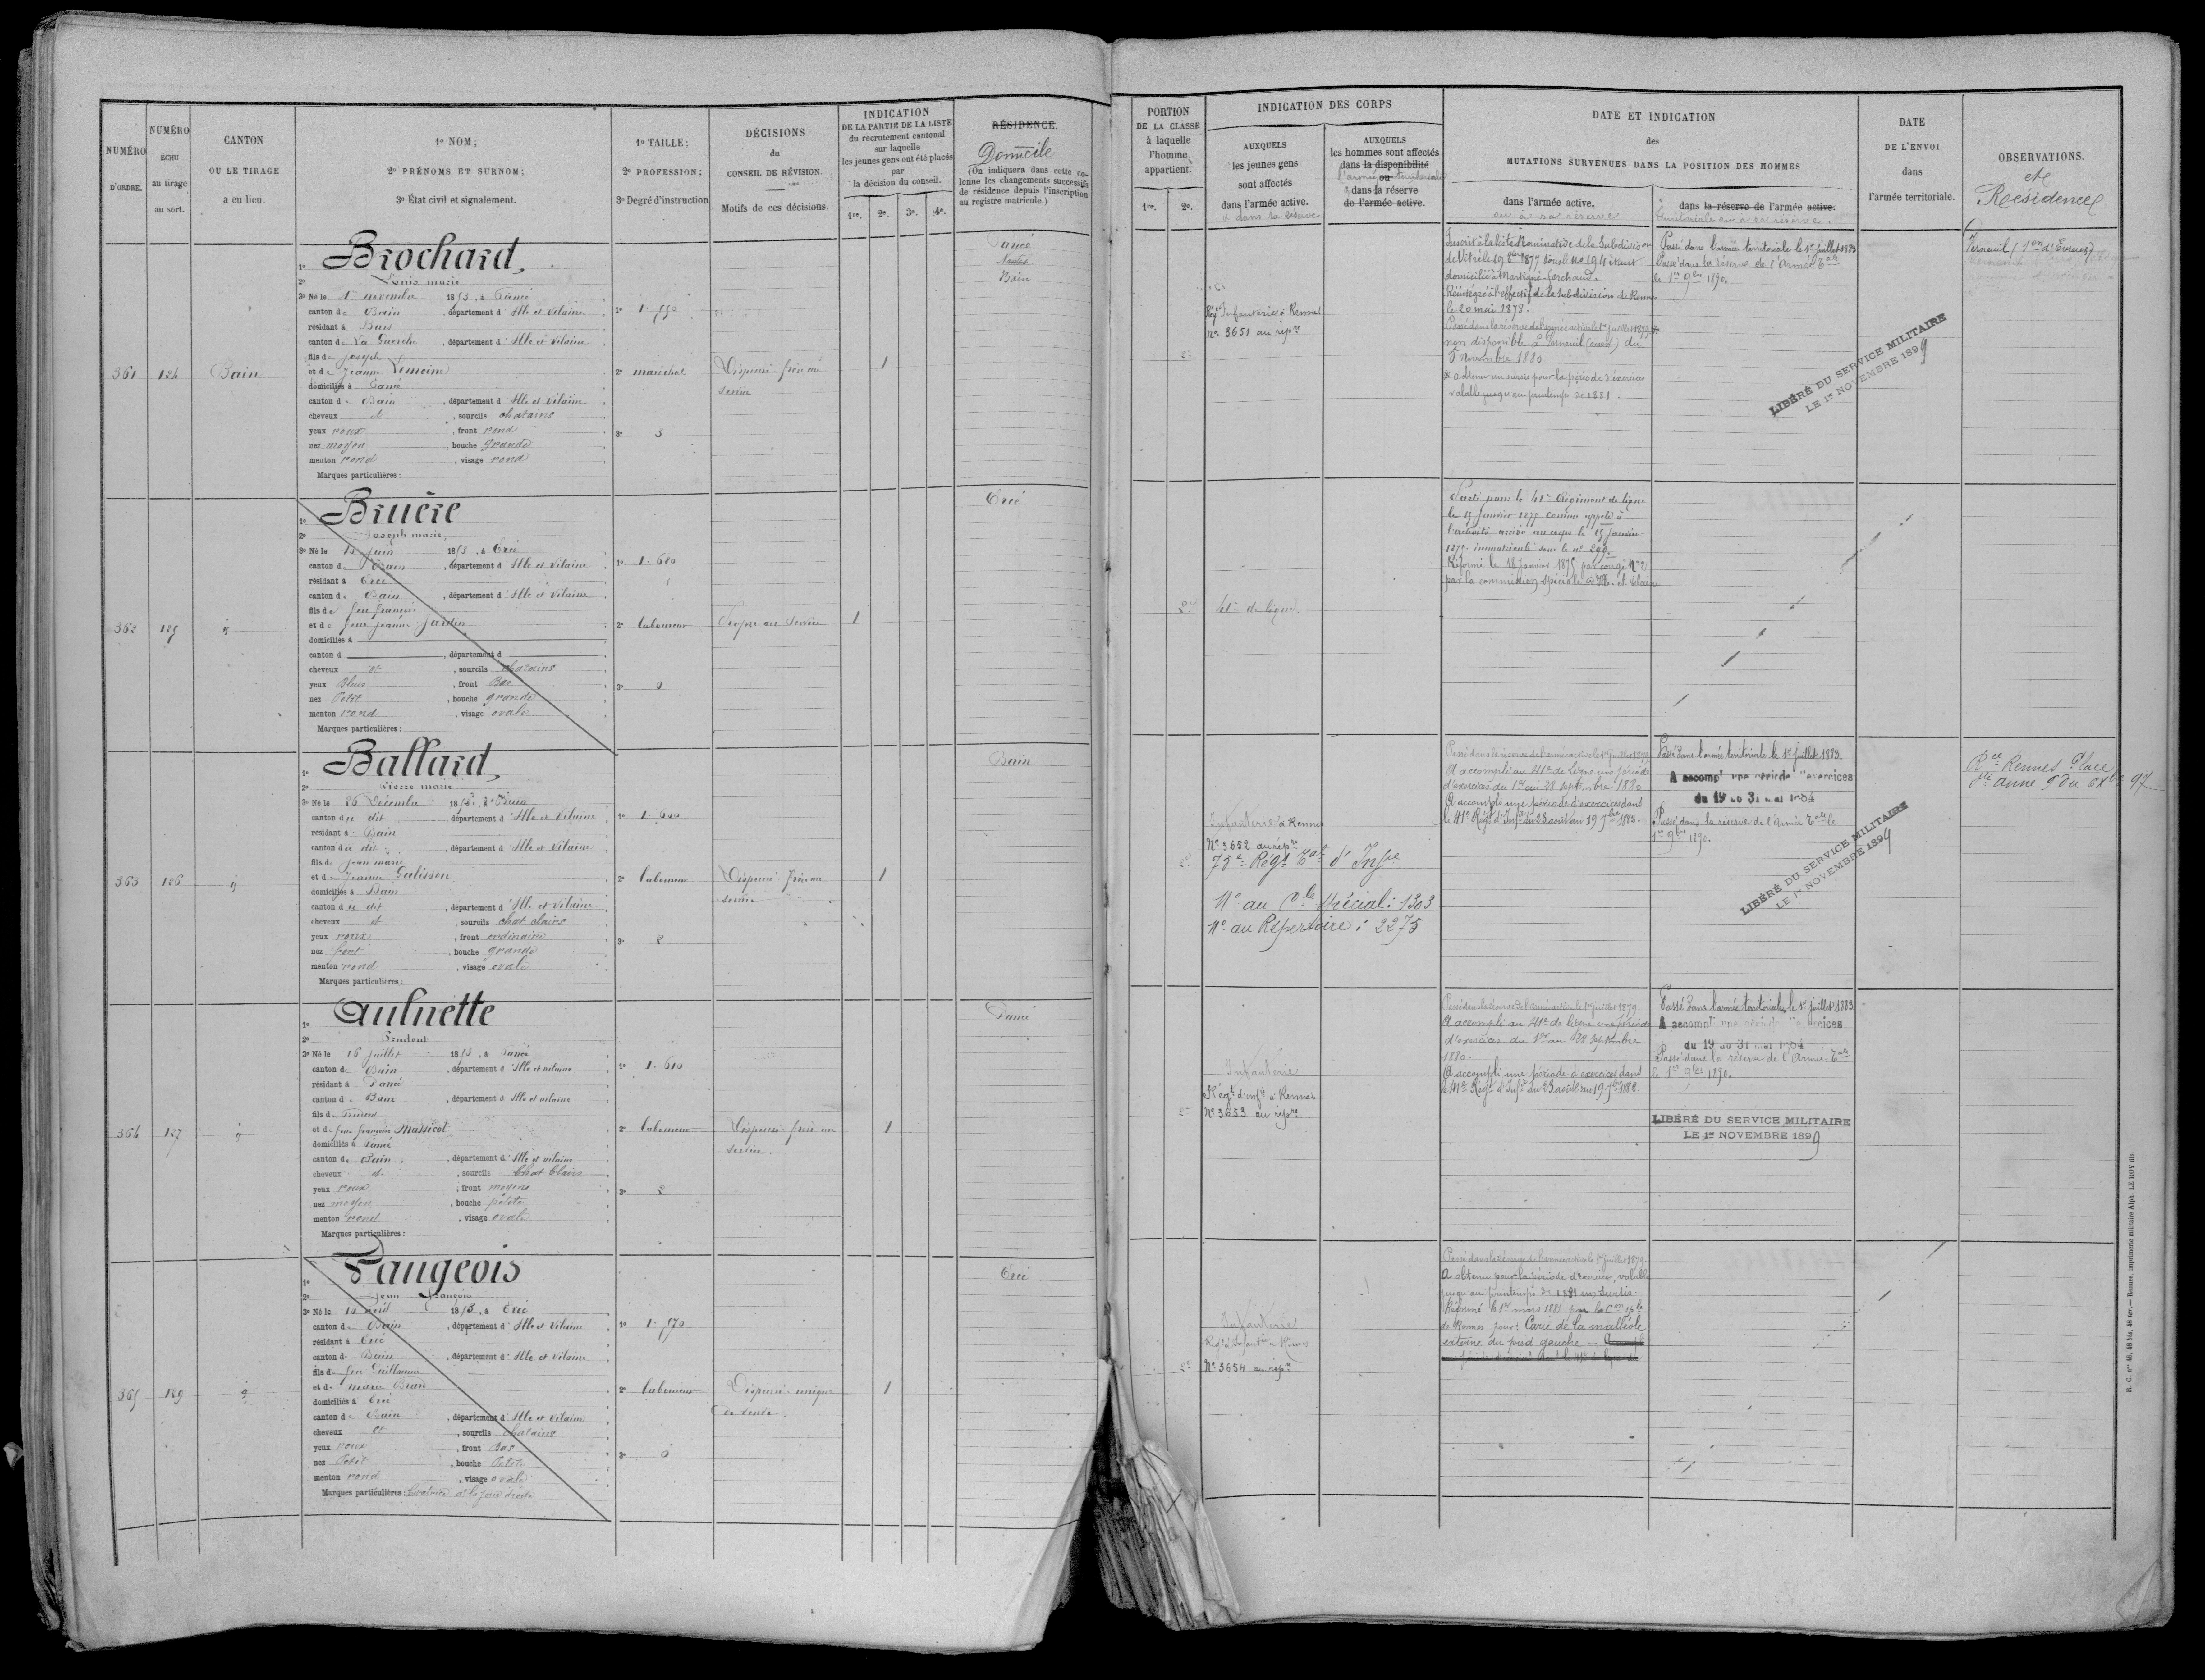 NUMÉRO
D'ORDRE.
NUMÉRO
ÉCHU
au tirage
au sort.
CANTON
OU LE TIRAGE
a eu lieu.
1º NOM;
2º PRÉNOMS ET SURNOM;
3º État civil et signalement.
1º TAILLE;
2º PROFESSION;
3º Degré d'instruction
DÉCISIONS
du
CONSEIL DE RÉVISION.
Motifs de ces décisions.
INDICATION
DE LA PARTIE DE LA LISTE
du recrutement cantonal
sur laquelle
les jeunes gens ont été placés
par
la décision du conseil.
1re. 2e. 3e. 4e.
RÉSIDENCE.
Domicile
(On indiquera dans cette co-
lonne les changements successifs
de résidence depuis l'inscription
au registre matricule.)
361
124
Bain
Brochard,
1º
2º Louis marie
3º Né le 1er novembre 1853, à Tancé
canton de Bain, département d'Ille et Vilaine
résidant à Bais
canton de La Guerche, département d'Ille et Vilaine
fils de Joseph
et de Jeanne Lemoine
domiciliés à Tancé
canton de Bain, département d'Ille et Vilaine
cheveux et, sourcils chatains
yeux roux, front rond
nez moyen, bouche grande
menton rond, visage rond
Marques particulières :
1º 1.550
2º maréchal
3º 3
Dispensé frère au
service
1
Tancé
Nantes
Bain
362
125
id
Bruère
1º
2º Joseph marie,
3º Né le 13 Juin 1853, à Ercé
canton de Bain, département d'Ille et Vilaine
résidant à Ercé
canton de Bain, département d'Ille et Vilaine
fils de feu François
et de feue Jeanne Jardin
domiciliés à
canton d, département d
cheveux et, sourcils chatains
yeux Bleus, front Bas
nez Petit, bouche grande
menton rond, visage ovale
Marques particulières :
1º 1.680
2º laboureur
3º 0
Propre au Service
1
Ercé
363
126
id
Ballard,
1º
2º Pierre marie
3º Né le 26 Décembre 1853, à Bain
canton du dit, département d'Ille et Vilaine
résidant à Bain
canton du dit, département d'Ille et Vilaine
fils de Jean marie
et de Jeanne Galisson
domiciliés à Bain
canton du dit, département d'Ille et Vilaine
cheveux et, sourcils chat clairs
yeux roux, front ordinaire
nez fort, bouche grande
menton rond, visage ovale
Marques particulières :
1º 1.600
2º laboureur
3º 2
Dispensé frère au
service
1
Bain
364
127
id
Aulnette
1º
2º Prudent
3º Né le 16 Juillet 1853, à Tancé
canton de Bain, département d'Ille et vilaine
résidant à Tancé
canton de Bain, département d'Ille et vilaine
fils de Prudent
et de feue françoise Massicot
domiciliés à Tancé
canton de Bain, département d'Ille et vilaine
cheveux et, sourcils Chat Clairs
yeux roux, front moyen
nez moyen, bouche petite
menton rond, visage ovale
Marques particulières :
1º 1.610
2º laboureur
3º 2
Dispensé frère au
service.
1
365
129
id
Faugeois
1º
2º Jean François
3º Né le 10 avril 1853, à Ercé
canton de Bain, département d'Ille et Vilaine
résidant à Ercé
canton de Bain, département d'Ille et Vilaine
fils de feu Guillaume
et de marie
domiciliés à Ercé
canton de Bain, département d'Ille et Vilaine
cheveux et, sourcils chatains
yeux roux, front Bas
nez Petit, bouche Petite
menton rond, visage ovale
Marques particulières : Cicatrice à la joue droite
1º 1.570
2º laboureur
3º 0
Dispensé unique
de veuve.
1
Ercé
PORTION
DE LA CLASSE
à laquelle
l'homme
appartient.
1re. 2e.
INDICATION DES CORPS
AUXQUELS
les jeunes gens
sont affectés
dans l'armée active.
& dans sa réserve
AUXQUELS
les hommes sont affectés
dans la disponibilité
l'armée ou territoriale
& dans la réserve
de l'armée active.
DATE ET INDICATION
des
MUTATIONS SURVENUES DANS LA POSITION DES HOMMES
dans l'armée active,
ou à sa réserve
dans la réserve de l'armée active.
territoriale ou à sa réserve.
DATE
DE L'ENVOI
dans
l'armée territoriale.
OBSERVATIONS.
et
Résidences
2e
Régt Infanterie à Rennes
No 3651 au repre
Inscrit à la liste nominative de la Subdivision
de Vitré le 19 8bre 1877 sous le no 194 étant
domicilié à Martigné-Ferchaud.
Réintégré à l'effectif de la subdivision de Rennes
le 20 mai 1878.
Passé dans la réserve de l'armée active le 1er Juillet 1879
non disponible à Verneuil (ouest) du
5 Novembre 1880
a obtenu un sursis pour la période d'exercices
valable jusqu'au printemps de 1881.
Passé dans l'armée territoriale le 1er juillet 1883
Passé dans la réserve de l'Armée Tale
le 1er 9bre 1890.
LIBÉRÉ DU SERVICE MILITAIRE
LE 1er NOVEMBRE 1899
Verneuil (Son d'Evreux)
2e
41e de ligne.
Parti pour le 41e Régiment de ligne
le 15 Janvier 1875 comme appelé à
l'activité arrivé au corps le 15 Janvier
1875 immatriculé sous le no 290.
Réformé le 18 Janvier 1875 par congé No 2
par la commission spéciale d'Ille-et-Vilaine
2e
Infanterie à Rennes
No 3652 au repre
75e Régt Tal d'Infie
No au Cle spécial : 1303
No au Répertoire : 2275
Passé dans la réserve de l'armée active le 1er Juillet 1879
A accompli au 41e de ligne une période
d'exercices du 1er au 28 septembre 1880
A accompli une période d'exercices dans
le 41e Régt d'Infie du 23 août au 19 7bre 1882.
Passé dans l'armée territoriale le 1er juillet 1883.
A accompli une période d'exercices
du 19 au 31 mai 1884
Passé dans la réserve de l'Armée Tale le
1er 9bre 1890.
LIBÉRÉ DU SERVICE MILITAIRE
LE 1er NOVEMBRE 1899
Rennes Place
Ste anne 9 du 97
2e
Infanterie
Régt d'infie à Rennes
No 3653 au repre
Passé dans la réserve de l'armée active le 1er Juillet 1879.
A accompli au 41e de ligne une période
d'exercices du 1er au 28 Septembre
1880.
A accompli une période d'exercices dans
le 41e Régt d'Infie du 23 août au 19 7bre 1882.
Passé dans l'armée territoriale le 1er juillet 1883
A accompli une période d'exercices
du 19 au 31 mai 1884
Passé dans la réserve de l'Armée Tale
le 1er 9bre 1890.
LIBÉRÉ DU SERVICE MILITAIRE
LE 1er NOVEMBRE 1899
2e
Infanterie
Régt d'Infantie à Rennes
No 3654 au repre
Passé dans la réserve de l'armée active le 1er Juillet 1879.
A obtenu pour la période d'exercices, valable
jusqu'au printemps de 1881 un sursis.
Réformé le 1er mars 1881 par la Con
de Rennes pour Carie de la malléole
externe du pied gauche
R. C. nos 46, 46 bis, 46 ter.— Rennes, imprimerie militaire Alph. LE ROY fils